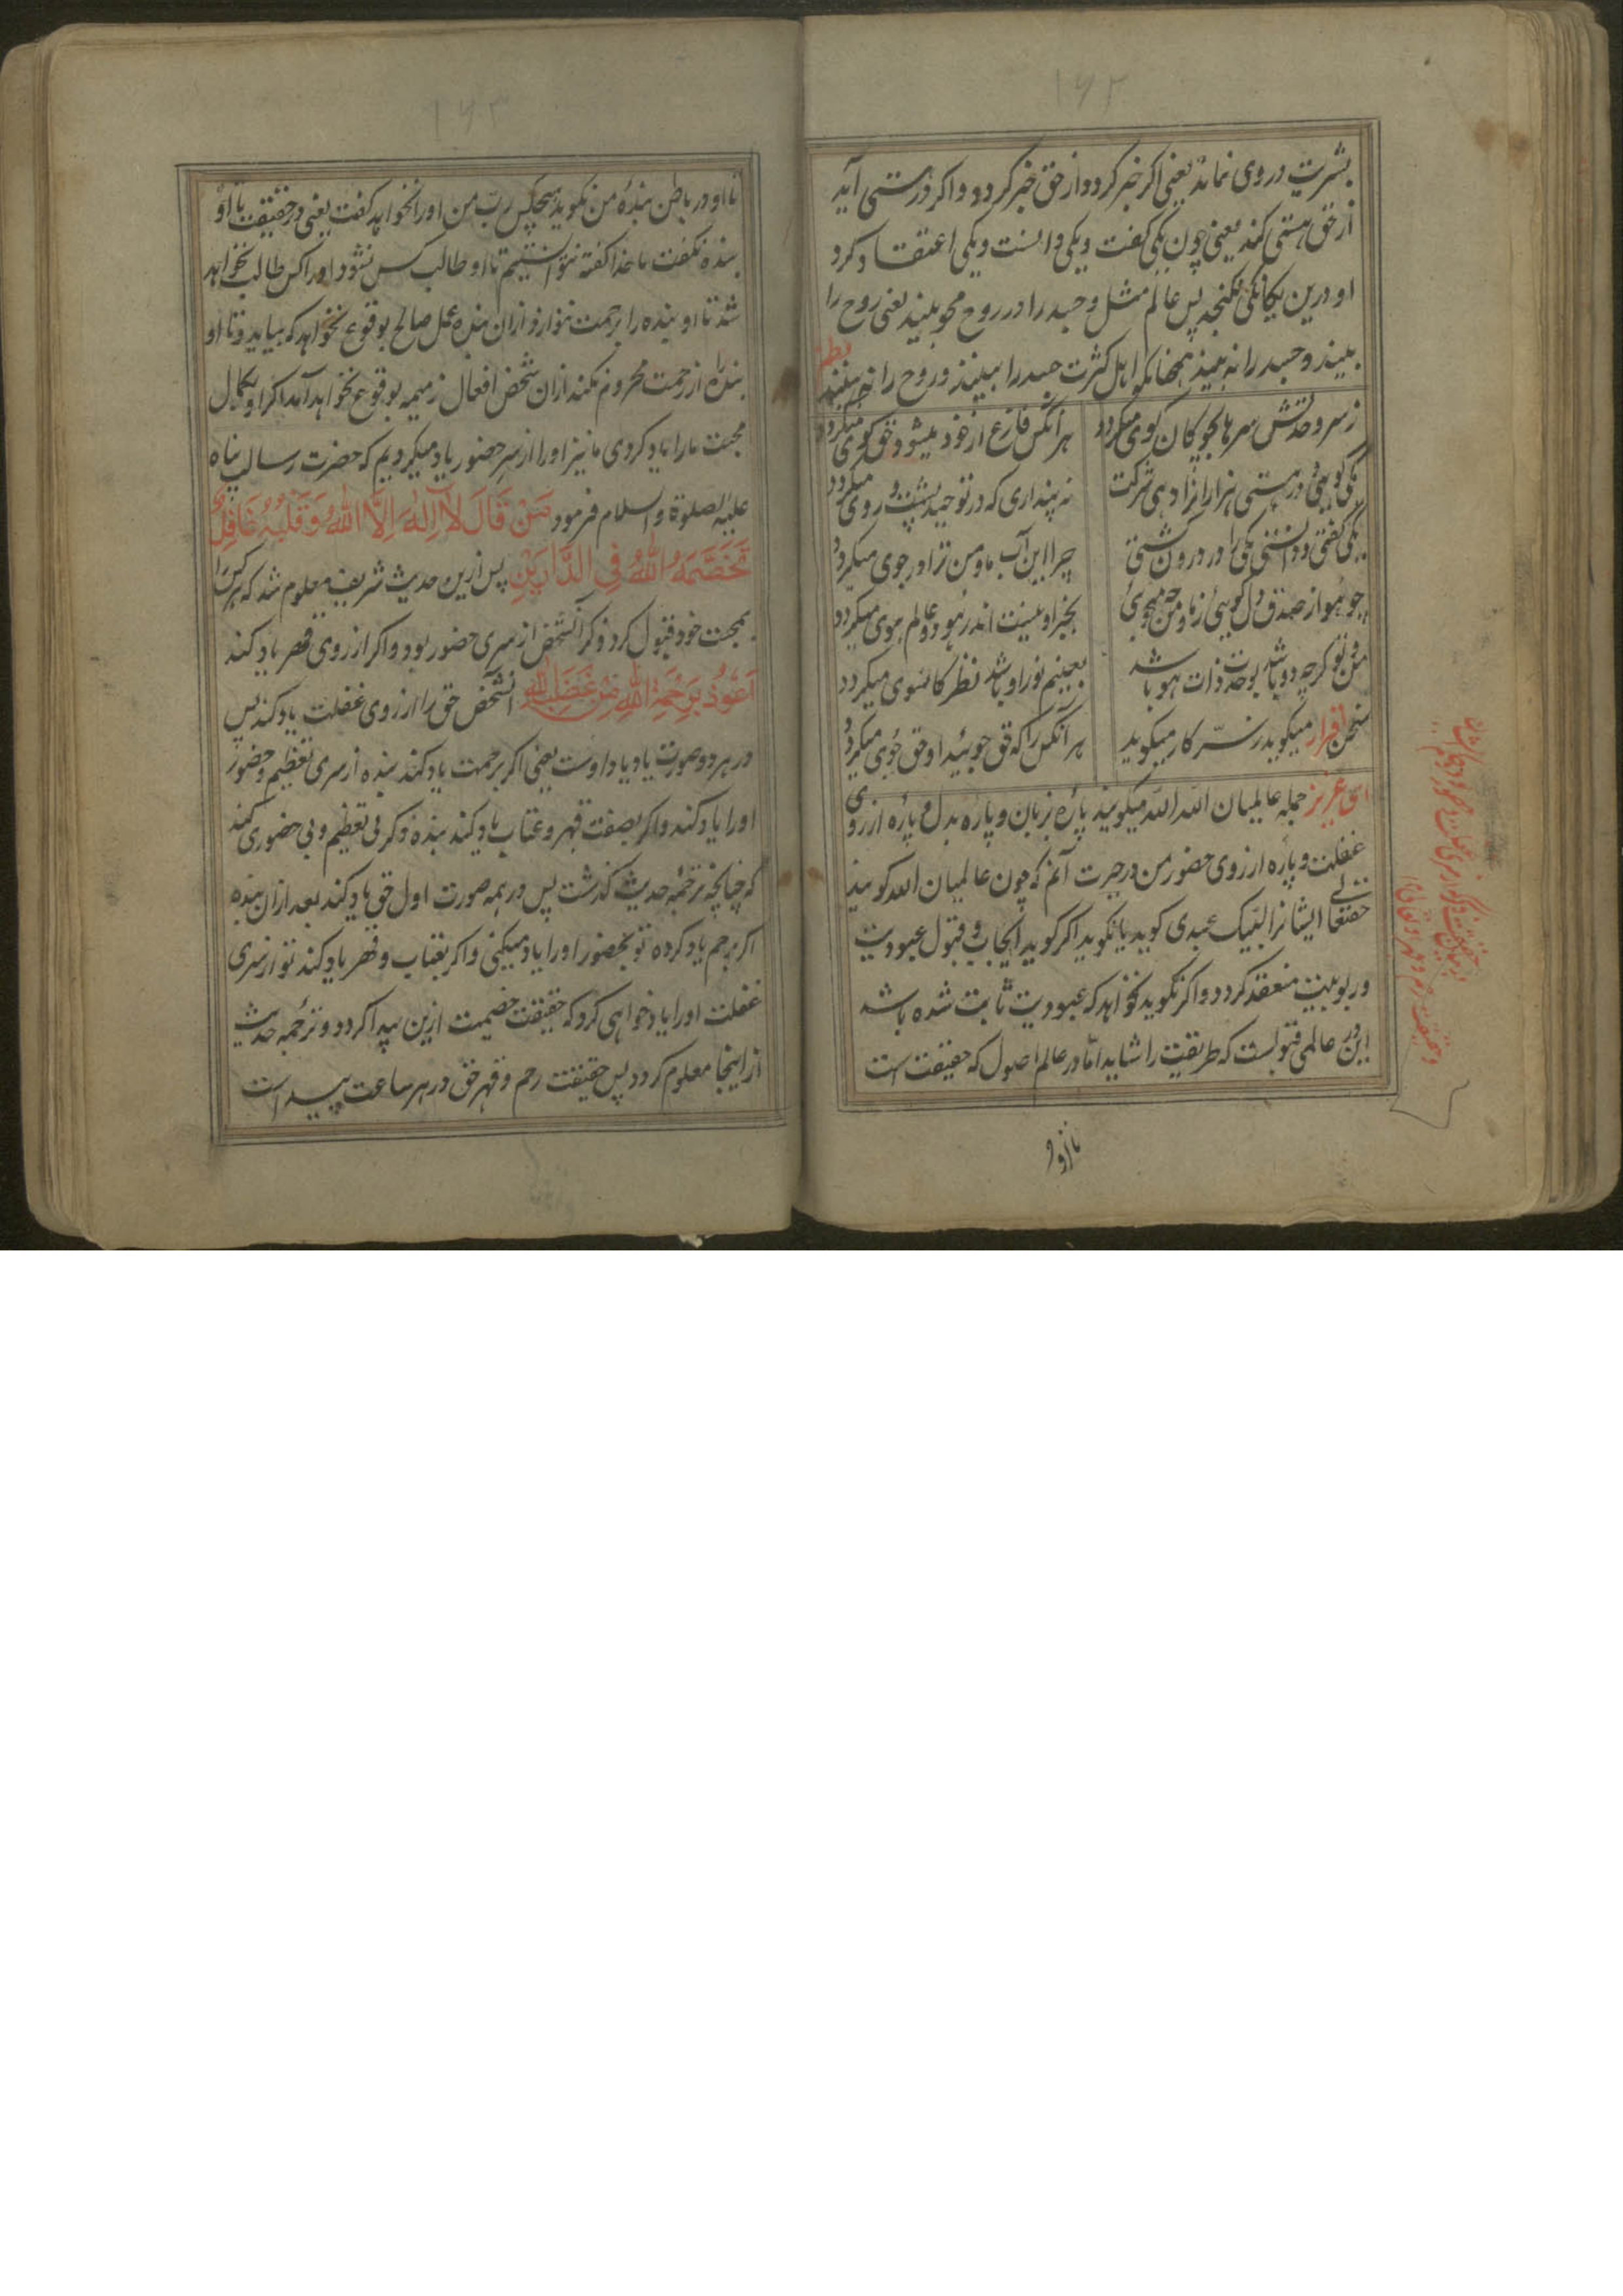 ۱۶۲
بشریت در وی نماند یعنی اکر خبر کردد از حق خبر کردد و اکر در هستی آید
از حق هستی کند یعنی چون یکی کفت و یکی دانست و یکی اعتقاد کرد
او درین یکانکی نکنجد پس عالم مثل و جسد را در روح محو بیند یعنی روح را
ببیند و جسد را نه بیند همچنانکه اهل کثرت جسد را ببیند و روح را نه بیند نظم
ز سر وحدتش سرها بچوکان کوی میکردد
هر آنکس فارغ از خود میشود حق کوی میکردد
یکی کویی و در هستی هزاران را دهی شرکت
نه پنداری که در توحید پشت و روی میکردد
یکی کفتی و دانستی یکی را در درون کشتی
چرا این آب ما و من ترا در جوی میکردد
چو هو از صدق دل کویی ز ما و من چه میجویی
بجز او نیست اندر هر دو عالم هوی میکردد
من و تو کرچه دو باشد بوحدت ذات هو باشد
بعینم نور او باشد نظر کانسوی میکردد
سخن اقرار میکوید ز سّر کار میکوید
هر آنکس را که حق جوید او حق جوی میکردد
ای عزیز جمله عالمیان الله الله میکویند پاره بزبان و پاره بدل و پاره از روی
غفلت و پاره از روی حضور من در حیرت آنم که چون عالمیان الله کویند
حقتعالی ایشانرا لبیک عبدی کوید یا نکوید اکر کوید ایجاب و قبول عبودیت
و ربوبیت منعقد کردد و اکر نکوید نخواهد که عبودیت ثابت شده باشد
این در عالمی قبولست که طریقت را شاید اما در عالم اصول که حقیقت است
تا او
۱۶۳
تا او در باطن بندهٔ من نکوید هیچکس ربّ من اورا نخواهد کفت یعنی در حقیقت تا او
بنده نکفت ما خدا کفته نتوانستیم تا او طالب کس نشود اورا کس طالب نخواهد
شد تا او بنده را برحمت ننوازد ازان بنده عمل صالح بوقوع نخواهد که بیاید و تا او
بنده را از رحمت محروم نکند ازان شخص افعال ذمیمه بوقوع نخواهد آمد اکر او بکمال
محبت مارا یاد کردی ما نیز اورا از سر حضور یاد میکردیم که حضرت رسالت پناه
علیه الصلوة والسلام فرمود مَنْ قَالَ لَا اِلٰهَ اِلَّا اللهُ وَ قَلْبُهُ غَافِلٌ
فَخَصْمُهُ اللهُ فِی الدَّارَیْنِ پس ازین حدیث شریف معلوم شد که هر کس را
بمحبت خود قبول کرد ذکر آنشخص از سری حضور بود و اکر از روی قهر یاد کند
اَعُوذُ بِرَحْمَةِ اللهِ مِنْ غَضَبِ اللهِ آنشخص حق را از روی غفلت یاد کند پس
در هر دو صورت یاد یاد اوست یعنی اکر برحمت یاد کند بنده از سری تعظیم و حضور
اورا یاد کند و اکر بصفت قهر و عتاب یاد کند بنده ذکر بی تعظیم و بی حضوری کند
که چنانچه ترجمهٔ حدیث کذشت پس در همه صورت اول حق یاد کند بعد ازان بنده
اکر برحم یاد کرده تو بحضور اورا یاد میکنی و اکر بعتاب و قهر یاد کند تو از سری
غفلت اورا یاد خواهی کرد که حقیقت خصیمت ازین پیدا کردد و ترجمه حدیث
از اینجا معلوم کردد پس حقیقت رحم و قهر حق در هر ساعت پیداست